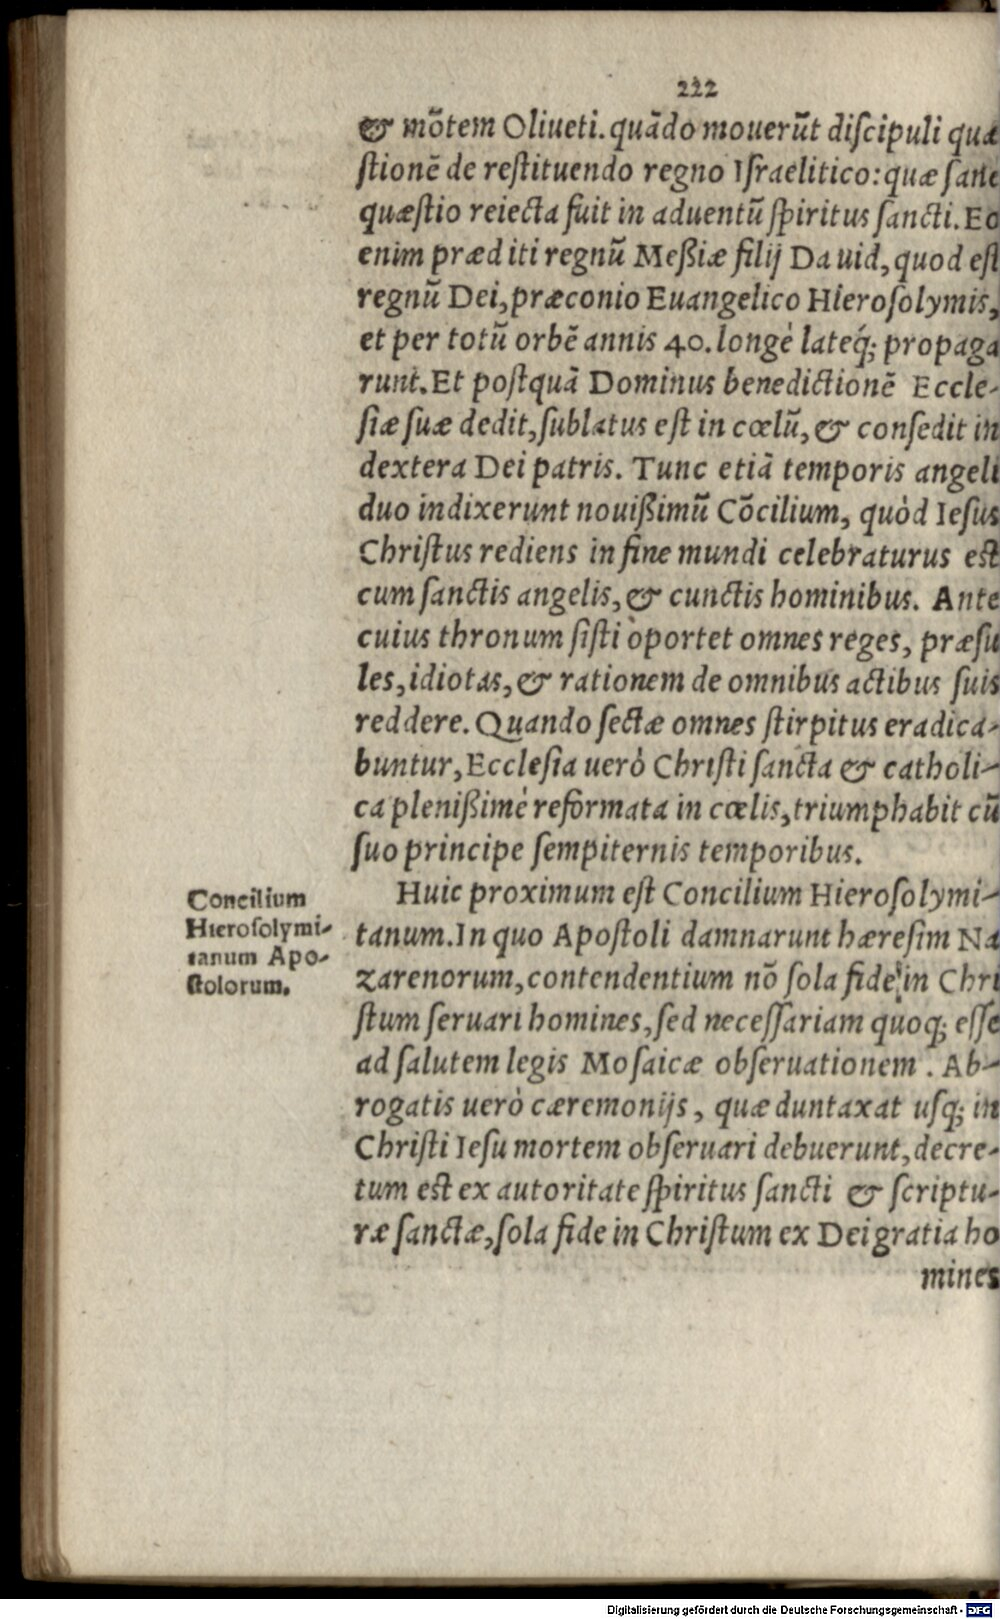 222
& mõtem Oliueti. quãdo mouerũt diſcipuli quæ
ſtionẽ de reſtituendo regno Iſraelitico: quæ ſane
quæſtio reiecta fuit in aduentũ ſpiritus ſancti. Eo
enim præditi regnũ Meßiæ filij Dauid, quod eſt
regnũ Dei, præconio Euangelico Hieroſolymis,
et per totũ orbẽ annis 40. longè lateq́; propaga
runt. Et poſtquã Dominus benedictionẽ Eccle-
ſiæ ſuæ dedit, ſublatus eſt in cœlũ, & conſedit in
dextera Dei patris. Tunc etiã temporis angeli
duo indixerunt nouißimũ Cõcilium, quòd Ieſus
Chriſtus rediens in fine mundi celebraturus eſt
cum ſanctis angelis, & cunctis hominibus. Ante
cuius thronum ſiſti oportet omnes reges, præſu
les, idiotas, & rationem de omnibus actibus ſuis
reddere. Quando ſectæ omnes ſtirpitus eradica-
buntur, Eccleſia uerò Chriſti ſancta & catholi-
ca plenißimè reformata in cœlis, triumphabit cũ
ſuo principe ſempiternis temporibus.
Concilium
Hieroſolymi-
tanum Apo-
ſtolorum.
Huic proximum eſt Concilium Hieroſolymi-
tanum. In quo Apoſtoli damnarunt hæreſim Na
zarenorum, contendentium nõ ſola fide in Chri
ſtum ſeruari homines, ſed neceſſariam quoq; eſſe
ad ſalutem legis Moſaicæ obſeruationem. Ab-
rogatis uerò cæremonijs, quæ duntaxat uſq; in
Chriſti Ieſu mortem obſeruari debuerunt, decre-
tum eſt ex autoritate ſpiritus ſancti & ſcriptu-
ræ ſanctæ, ſola fide in Chriſtum ex Dei gratia ho
mines
Digitalisierung gefördert durch die Deutsche Forschungsgemeinschaft - DFG